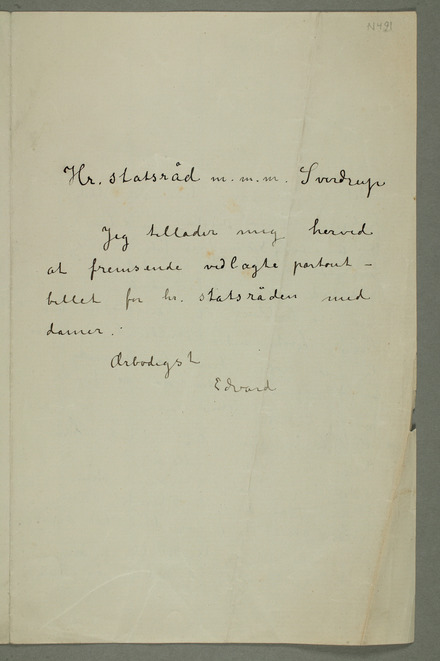 N421
Hr. statsråd m. m. m. Sverdrup
Jeg tillader mig herved
at fremsende vedlagte partout-
billet for hr. statsråden med
damer.
Ærbødigst
Edvard